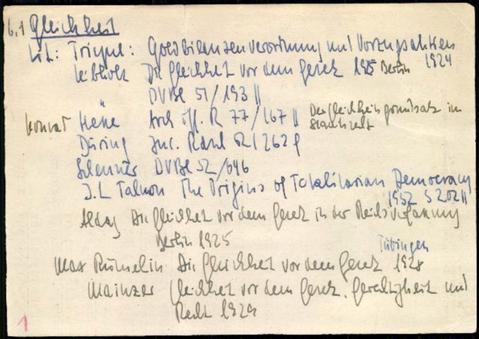 6.1 Gleichheit
Lit: Triepel: Goldbilanzenverordnung und Vorzugsaktien
1924
Leibholz Die Gleichheit vor dem Gesetz 1925 Berlin
DVBl 51/193 ff
Konrad Hesse Arch öff. R 77/167 ff Der Gleichheitsgrundsatz im
Staatsrecht
Dürig Jur. 262 f
DVBl 52/646
J. L Talmon The Origins of Totalitarian Democracy
1952 S 202 ff
Aldag Die Gleichheit vor dem Gesetz in der Reichsverfassung
Berlin 1925
Max Rümelin Die Gleichheit vor dem Gesetz 1928
Tübingen
Mainzer Gleichheit vor dem Gesetz, Gerechtigkeit und
Recht 1929
1